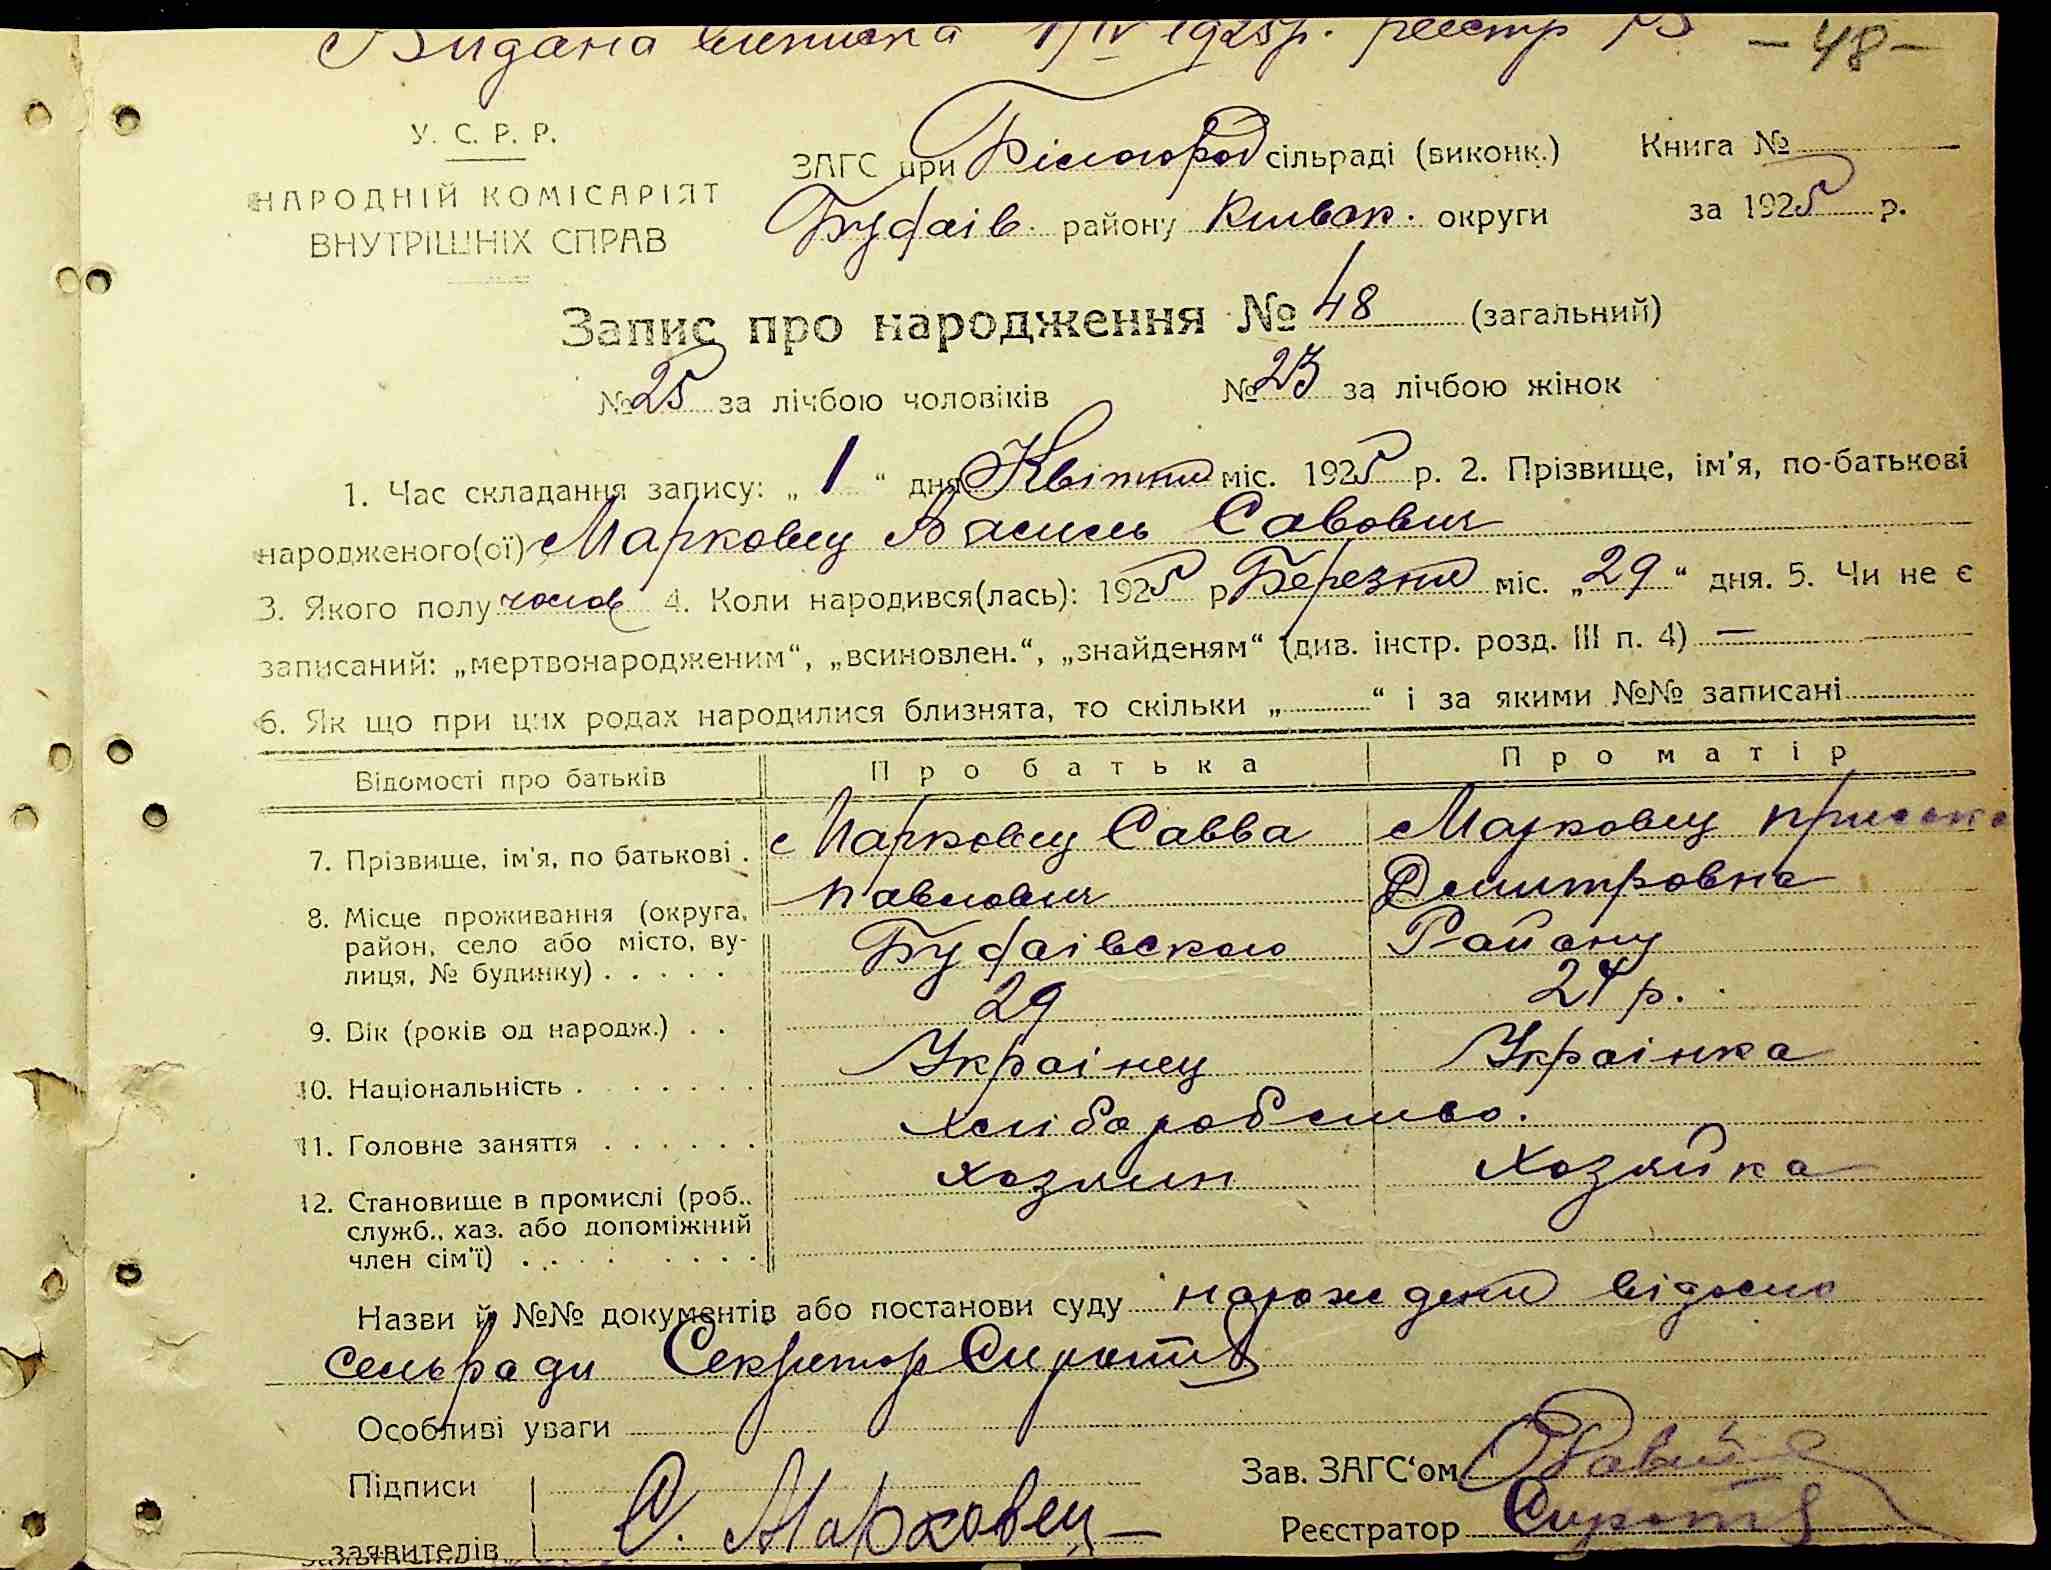 Видана виписка 1/IV 1925р. реєстр
— 48 —
У. С. Р. Р.
НАРОДНІЙ КОМІСАРІЯТ
ВНУТРІШНІХ СПРАВ
ЗАГС при Білогород сільраді (виконк.)
Будаїв. району Київск. округи
Книга №
за 1925 р.
Запис про народження № 48 (загальний)
№ 25 за лічбою чоловіків № 23 за лічбою жінок
1. Час складання запису: „ 1 “ дня Квітня міс. 1925 р. 2. Прізвище, ім'я, по-батькові
народженого(ої) Марковец Василь Савович
3. Якого полу чолов 4. Коли народився(лась): 1925 р Березня міс. „ 29 “ дня. 5. Чи не є
записаний: „мертвонародженим“, „всиновлен.“, „знайденям“ (див. інстр. розд. III п. 4) —
6. Як що при цих родах народилися близнята, то скільки „ “ і за якими №№ записані
Відомості про батьків Про батька Про матір
7. Прізвище, ім'я, по батькові . Марковец Савва Марковец Приська
Павлович Дмитровна
8. Місце проживання (округа,
район, село або місто, ву-
лиця, № будинку) . . . . . Будаівского Району
9. Вік (років од народж.) . . 29 24 р.
10. Національність . . . . . . . Украінец Украінка
11. Головне заняття . . . . . . Хлібаробство.
12. Становище в промислі (роб.. хозяин Хозяйка
служб., хаз. або допоміжний
член сім'ї) . . . . . . . .
Назви й №№ документів або постанови суду нарождения відомо
сельради Секретар Сирота
Особливі уваги
Підписи
заявителів С. Марковец
Зав. ЗАГС‘ом
Реєстратор Сирота